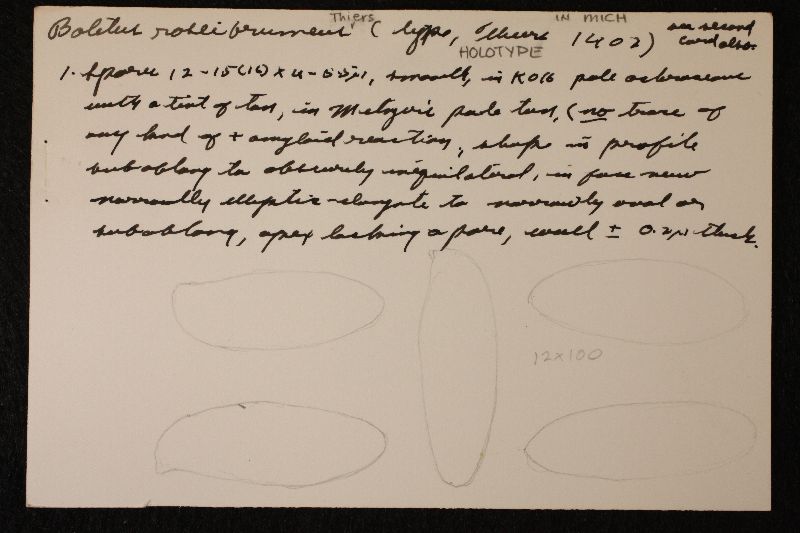 Boletus roseibrunneus Thiers (type, Thiers 1402) IN MICH see second card also.
HOLOTYPE
1. Spores 12-15(16) x 4-5.5µ, smooth, in KOH pale ochraceous
with a tint of tan, in Melzer's pale tan, (no trace of
any kind of + amyloid reaction, shape in profile
suboblong to obscurely inequilateral, in face view
narrowly elliptic-elongate to narrowly oval or
suboblong, apex lacking a pore, wall ± 0.2µ thick.
12x100